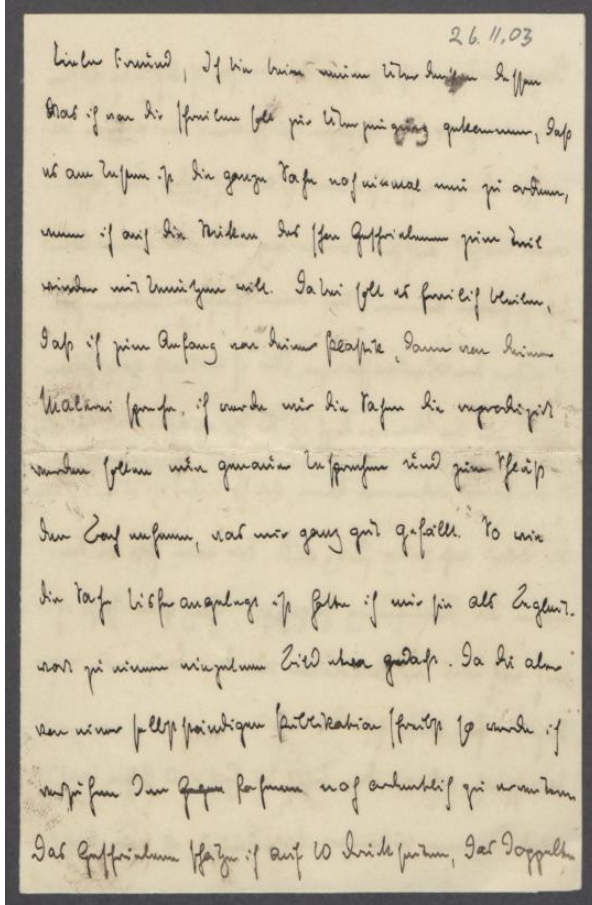 26.11.03
Lieber Freund, Ich bin beim meinem Überdenken dessen
Was ich von dir schreiben soll zur Überzeugung gekommen, daß
es am besten ist die ganze Sache noch einmal neu zu ordnen,
wenn ich auch die Stücke des schon Geschriebenen zum Teil
wieder mit benützen will. Dabei soll es freilich bleiben,
daß ich zum Anfang von deiner Plastik, dann von deiner
Malerei spreche, ich werde nur die Sachen die reproduzirt
werden sollen genauer besprechen und zum Schluß
den Bach nehmen, was mir ganz gut gefällt. So wie
die Sache bisher angelegt ist hatte ich mir sie als Begleit-
wort zu einem einzelnen Bild etwa gedacht. Da du aber
von einer selbstständigen Publikation schreibst so werde ich
versuchen den noch ordentlich zu erweitern
Das Geschriebene schätze ich auf 10 Druckseiten, das Doppelte